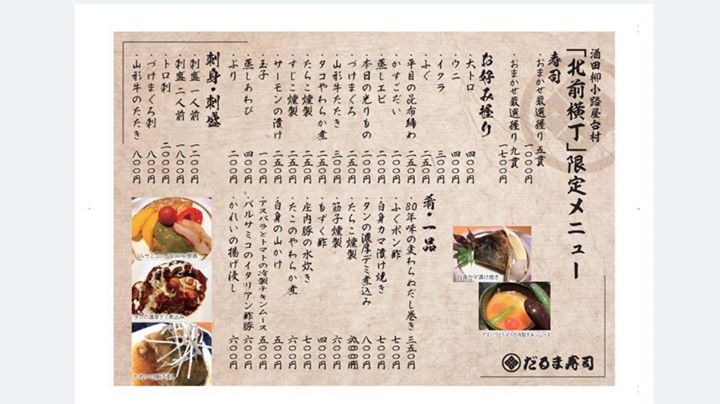 酒田柳小路屋台村
「北前横丁」限定メニュー
寿司
・おまかせ厳選握り 五貫 一〇〇〇円
・おまかせ厳選握り 九貫 一七〇〇円
お好み握り
・大トロ 四〇〇円
・ウニ 四〇〇円
・イクラ 三〇〇円
・ふぐ
・平目の昆布締め 二五〇円
・かすごだい
・蒸しエビ
・本日の光りもの
・づけまぐろ
・山形牛たたき 三〇〇円
・タコやわらか煮 二五〇円
・たらこ燻製 二五〇円
・すじこ燻製 二五〇円
・サーモンの漬け 二五〇円
・玉子 一〇〇円
・蒸しあわび
・ぶり 二〇〇円
刺身・刺盛
・刺盛 一人前 一二〇〇円
・刺盛 二人前 一八〇〇円
・トロ刺 二〇〇〇円
・づけまぐろ刺 八〇〇円
・山形牛のたたき 八〇〇円
肴・一品
・80年味の変わらぬだし巻き 三五〇円
・ふぐポン酢 七〇〇円
・白身カマ漬け焼き 七〇〇円
・タンの濃厚デミ煮込み 八〇〇円
・たらこ燻製
・筋子燻製 六〇〇円
・もずく酢 四〇〇円
・庄内豚の水炊き 七〇〇円
・たこのやわらか煮 六〇〇円
・白身の山かけ 五〇〇円
・アスパラとトマトの冷製チキンムース 五〇〇円
・バルサミコのイタリアン酢豚 六〇〇円
・かれいの揚げ浸し 六〇〇円
白身カマ漬け焼き
アスパラとトマトの冷製チキンムース
バルサミコのイタリアン酢豚
タンの濃厚デミ煮込み
かれいの揚げ浸し
だるま寿司